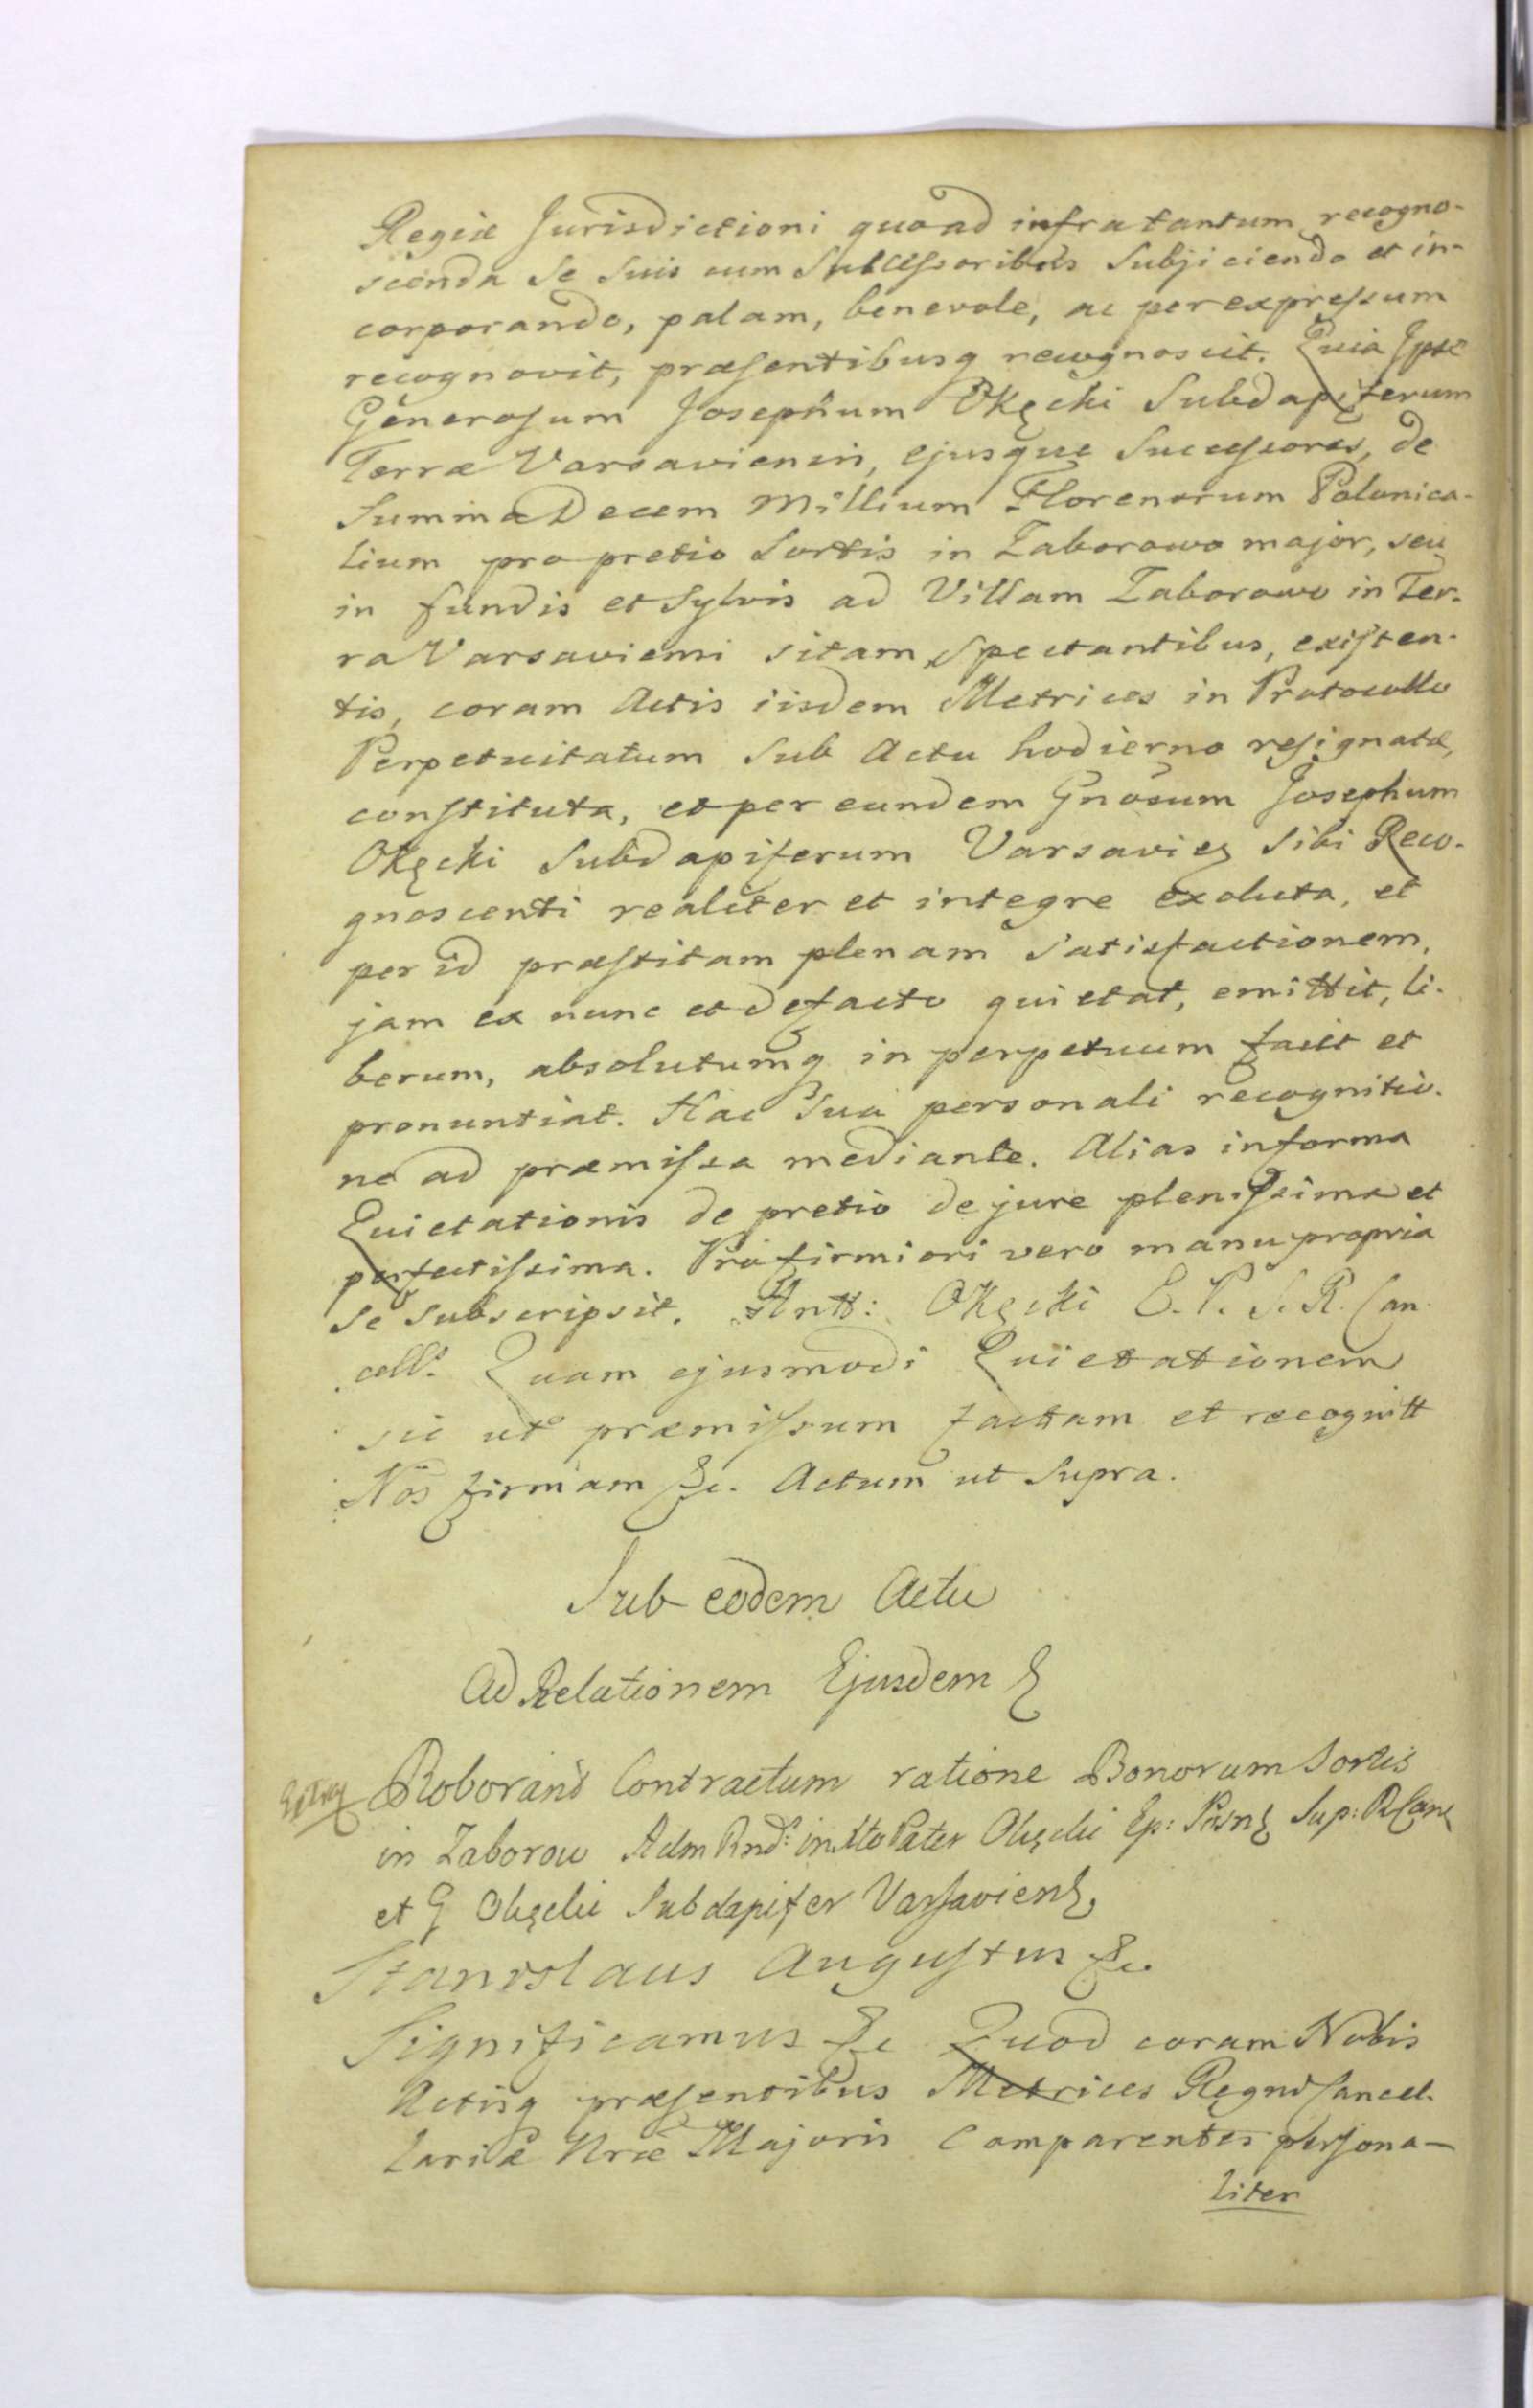 Regiæ Jurisdictioni quoad infra tantum recogno-
scenda se suis cum Successoribus subjiciendo et in-
corporando, palam, benevole, ac per expressum
recognovit, præsentibusq recognoscit. Quia Ipse
Generosum Josephum Okęcki Subdapiferum
Terræ Varsaviensis, ejusque Successores, de
Summa Decem Millium Florenorum Polonica-
lium pro pretio Sortis in Zaborowo major, seu
in fundis et sylvis ad Villam Zaborowo in Ter-
ra Varsaviensi sitam spectantibus, existen-
tis, coram Actis iisdem Metrices in Protocollo
Perpetuitatum sub Actu hodierno resignatæ,
constituta, et per eundem Gnosum Josephum
Okęcki Subdapiferum Varsavien sibi Reco-
gnoscenti realiter et integre exoluta, et
per id præstitam plenam satisfactionem,
jam ex nunc et de facto quietat, emittit, li-
berum, absolutumq in perpetuum facit et
pronuntiat. Hac sua personali recognitio-
ne ad præmissa mediante. Alias in forma
Quietationis de pretio de jure plenissima et
perfectissima. Pro firmiori vero manu propria
se subscripsit. Antt: Okęcki E. P. S. R. Can-
cell. Quam ejusmodi Quietationem
sic ut præmissum factam et recognitt
Nos firmam &c. Actum ut supra.
Sub eodem Actu
Ad Relationem Ejusdem
Roborand Contractum ratione Bonorum Sortis
in Zaborow Adm Rnd: in Xto Pater Okęcki Ep: Posn Sup: R Canc
et G Okęcki Subdapifer Varsavien
Stanislaus Augustus &c.
Significamus &c Quod coram Nobis
Actisq præsentibus Metrices Regni Cancel-
lariæ Nræ Majoris Comparentes persona-
liter